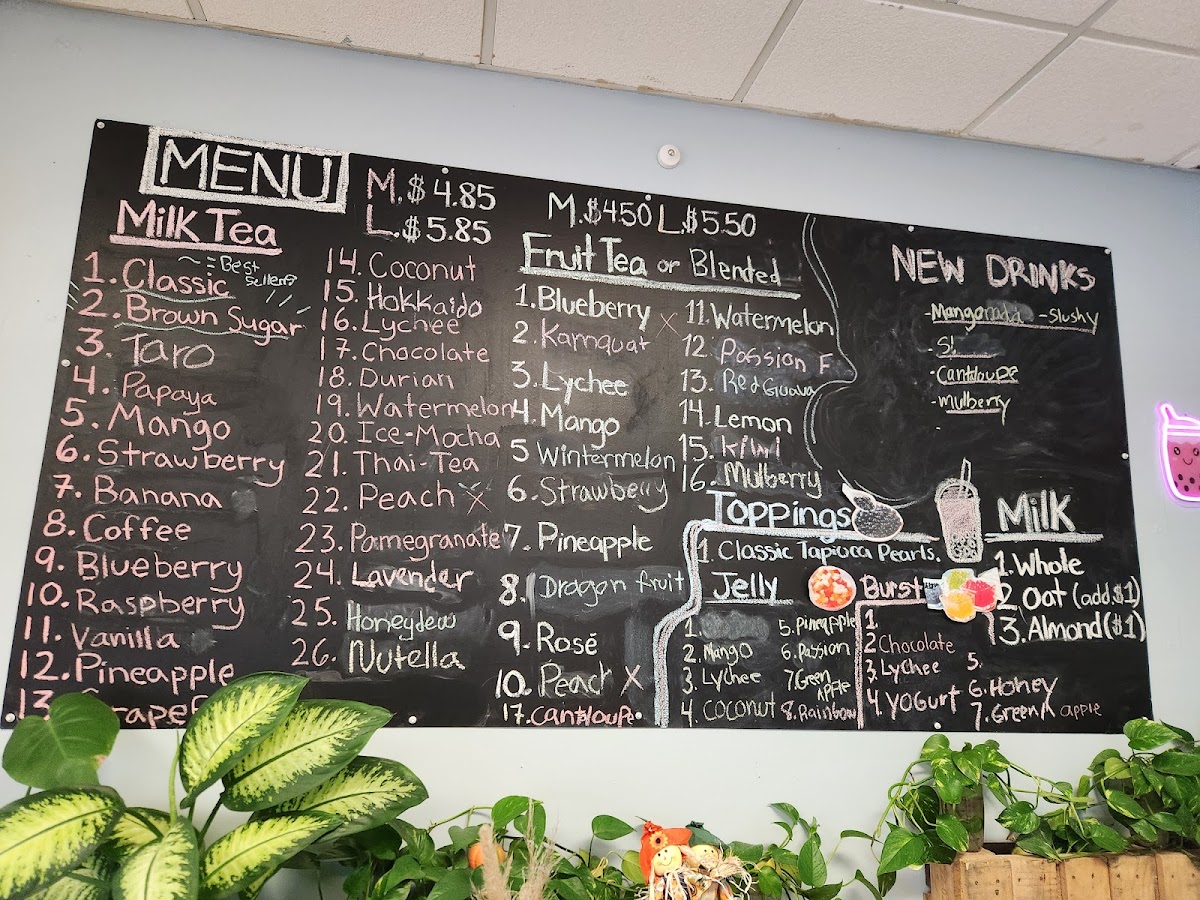 MENU
M.$4.85
L.$5.85
Milk Tea
Best Sellers
1. Classic
2. Brown Sugar
3. Taro
4. Papaya
5. Mango
6. Strawberry
7. Banana
8. Coffee
9. Blueberry
10. Raspberry
11. Vanilla
12. Pineapple
13.
14. Coconut
15. Hokkaido
16. Lychee
17. Chocolate
18. Durian
19. Watermelon
20. Ice-Mocha
21. Thai-Tea
22. Peach X
23. Pomegranate
24. Lavender
25. Honeydew
26. Nutella
M.$4.50 L.$5.50
Fruit Tea or Blended
1. Blueberry X
2. Kamquat
3. Lychee
4. Mango
5 Wintermelon
6. Strawberry
7. Pineapple
8. Dragon fruit
9. Rosé
10. Peach X
17. Cantaloupe
11. Watermelon
12. Passion F
13. Red Guava
14. Lemon
15. Kiwi
16. Mulberry
NEW DRINKS
- Mangonada - Slushy
- Cantaloupe
- Mulberry
Toppings
1. Classic Tapioca Pearls.
Jelly
1.
2. Mango
3. Lychee
4. Coconut
5. Pineapple
6. Passion
7. Green Apple
8. Rainbow
Burst
1.
2 Chocolate
3. Lychee
4. Yogurt
5.
6. Honey
7. Green Apple
Milk
1. Whole
2. Oat (add $1)
3. Almond ($1)